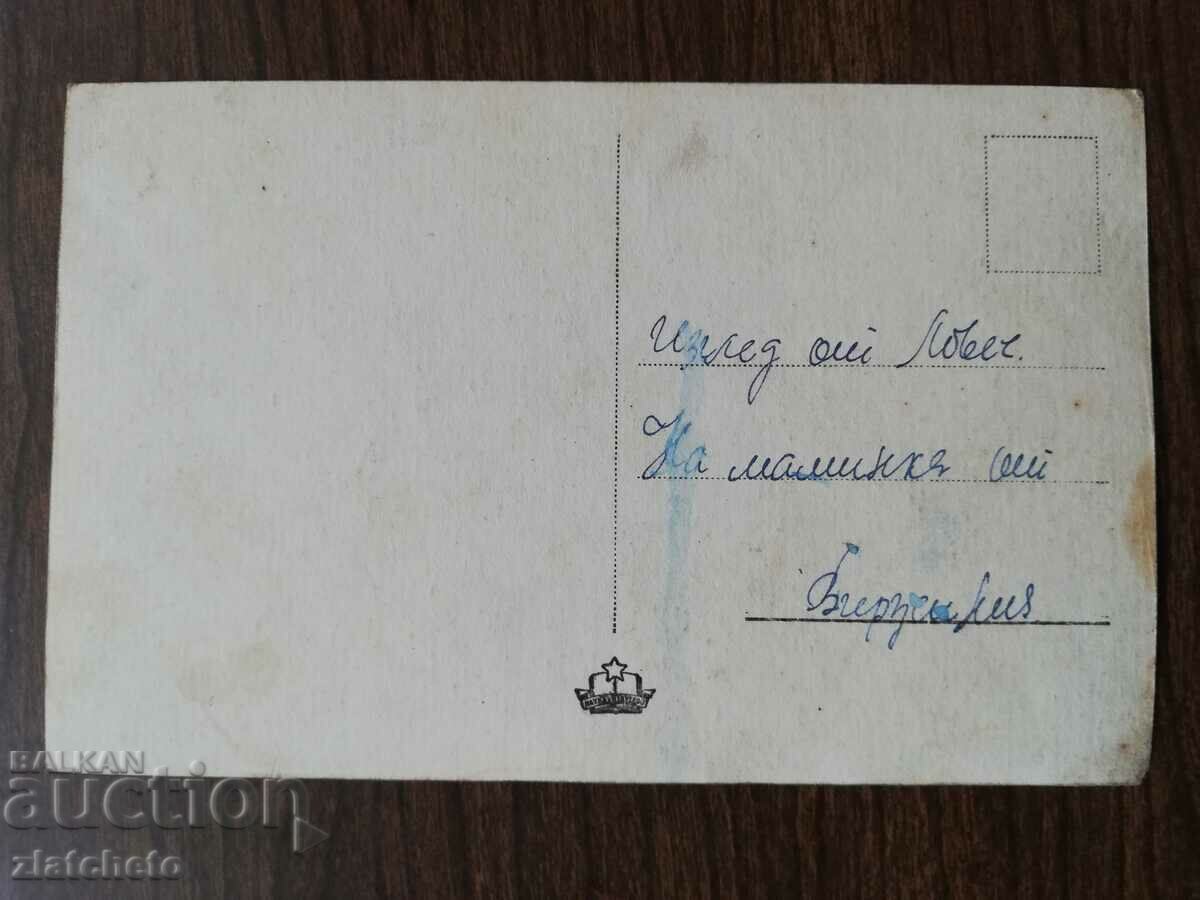 Изглед от Ловеч.
На маминка от
BALKAN
auction
zlatcheto